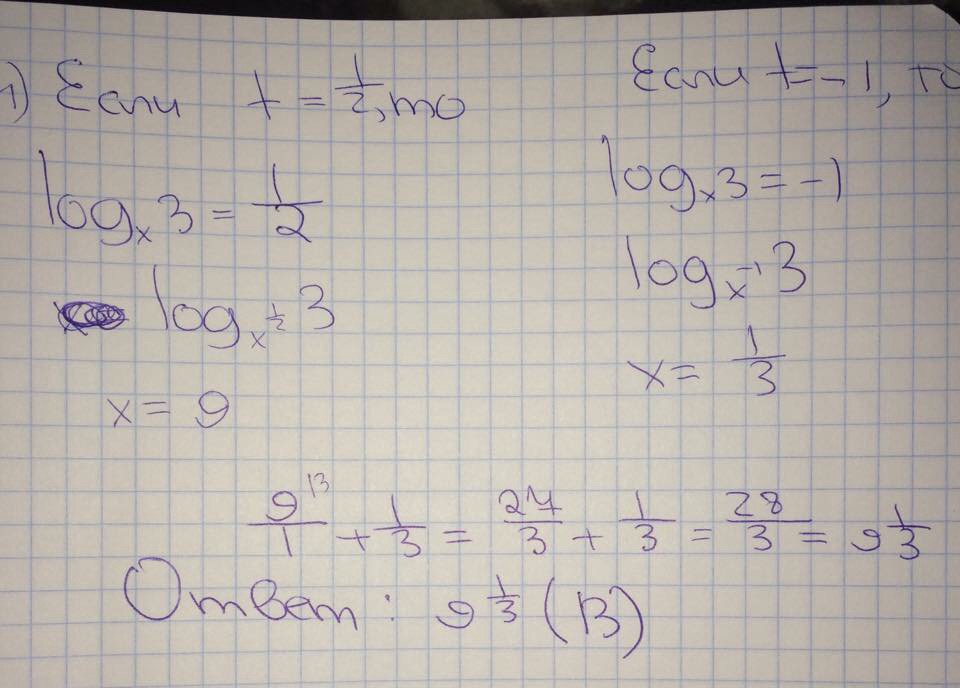 1) Если t = 1/2, то
log_x 3 = 1/2
log_x^(1/2) 3
x = 9
Если t = -1, то
log_x 3 = -1
log_x^(-1) 3
x = 1/3
9^(13)/1 + 1/3 = 27/3 + 1/3 = 28/3 = 9 1/3
Ответ: 9 1/3 (B)